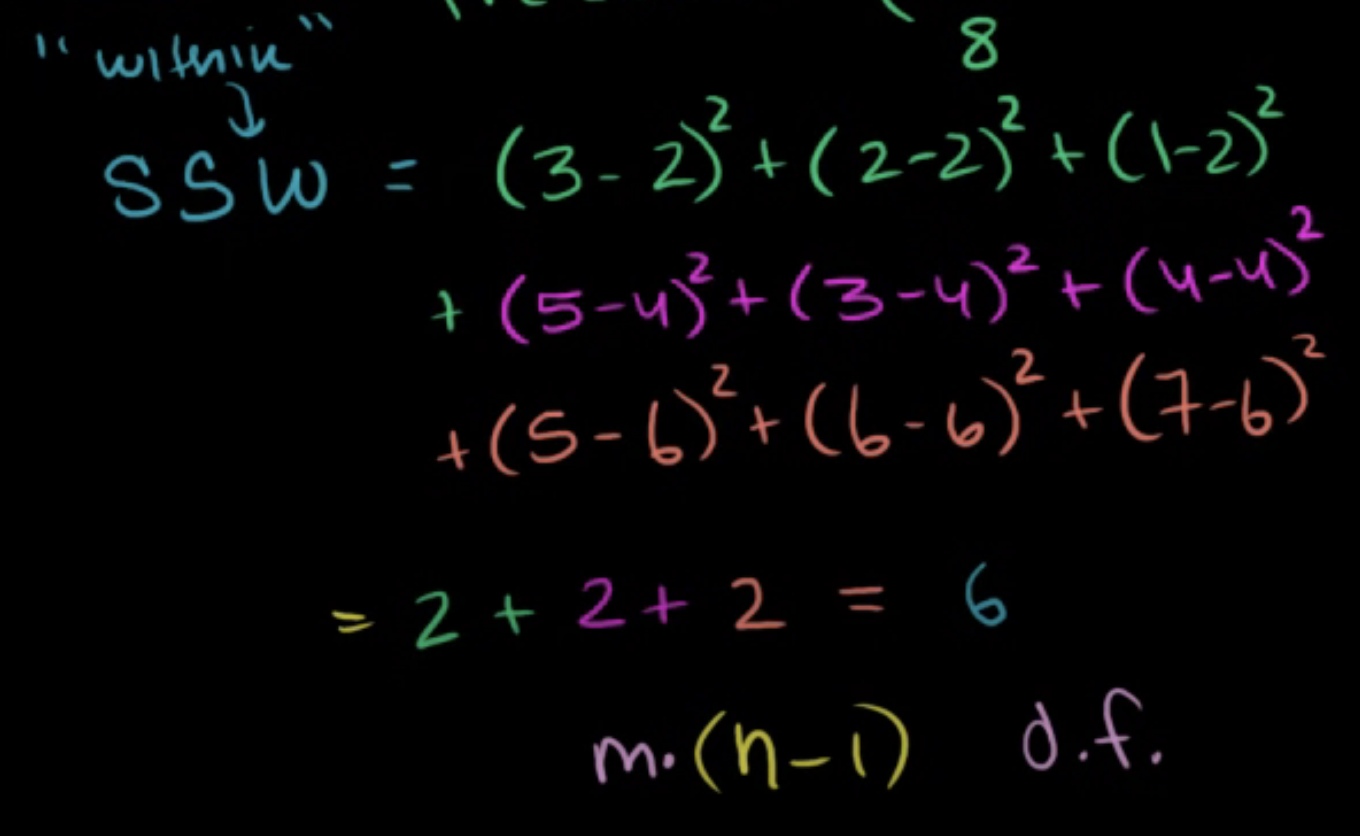 8
"within"
↓
SSW = (3-2)² + (2-2)² + (1-2)²
+ (5-4)² + (3-4)² + (4-4)²
+ (5-6)² + (6-6)² + (7-6)²
= 2 + 2 + 2 = 6
m·(n-1) d.f.